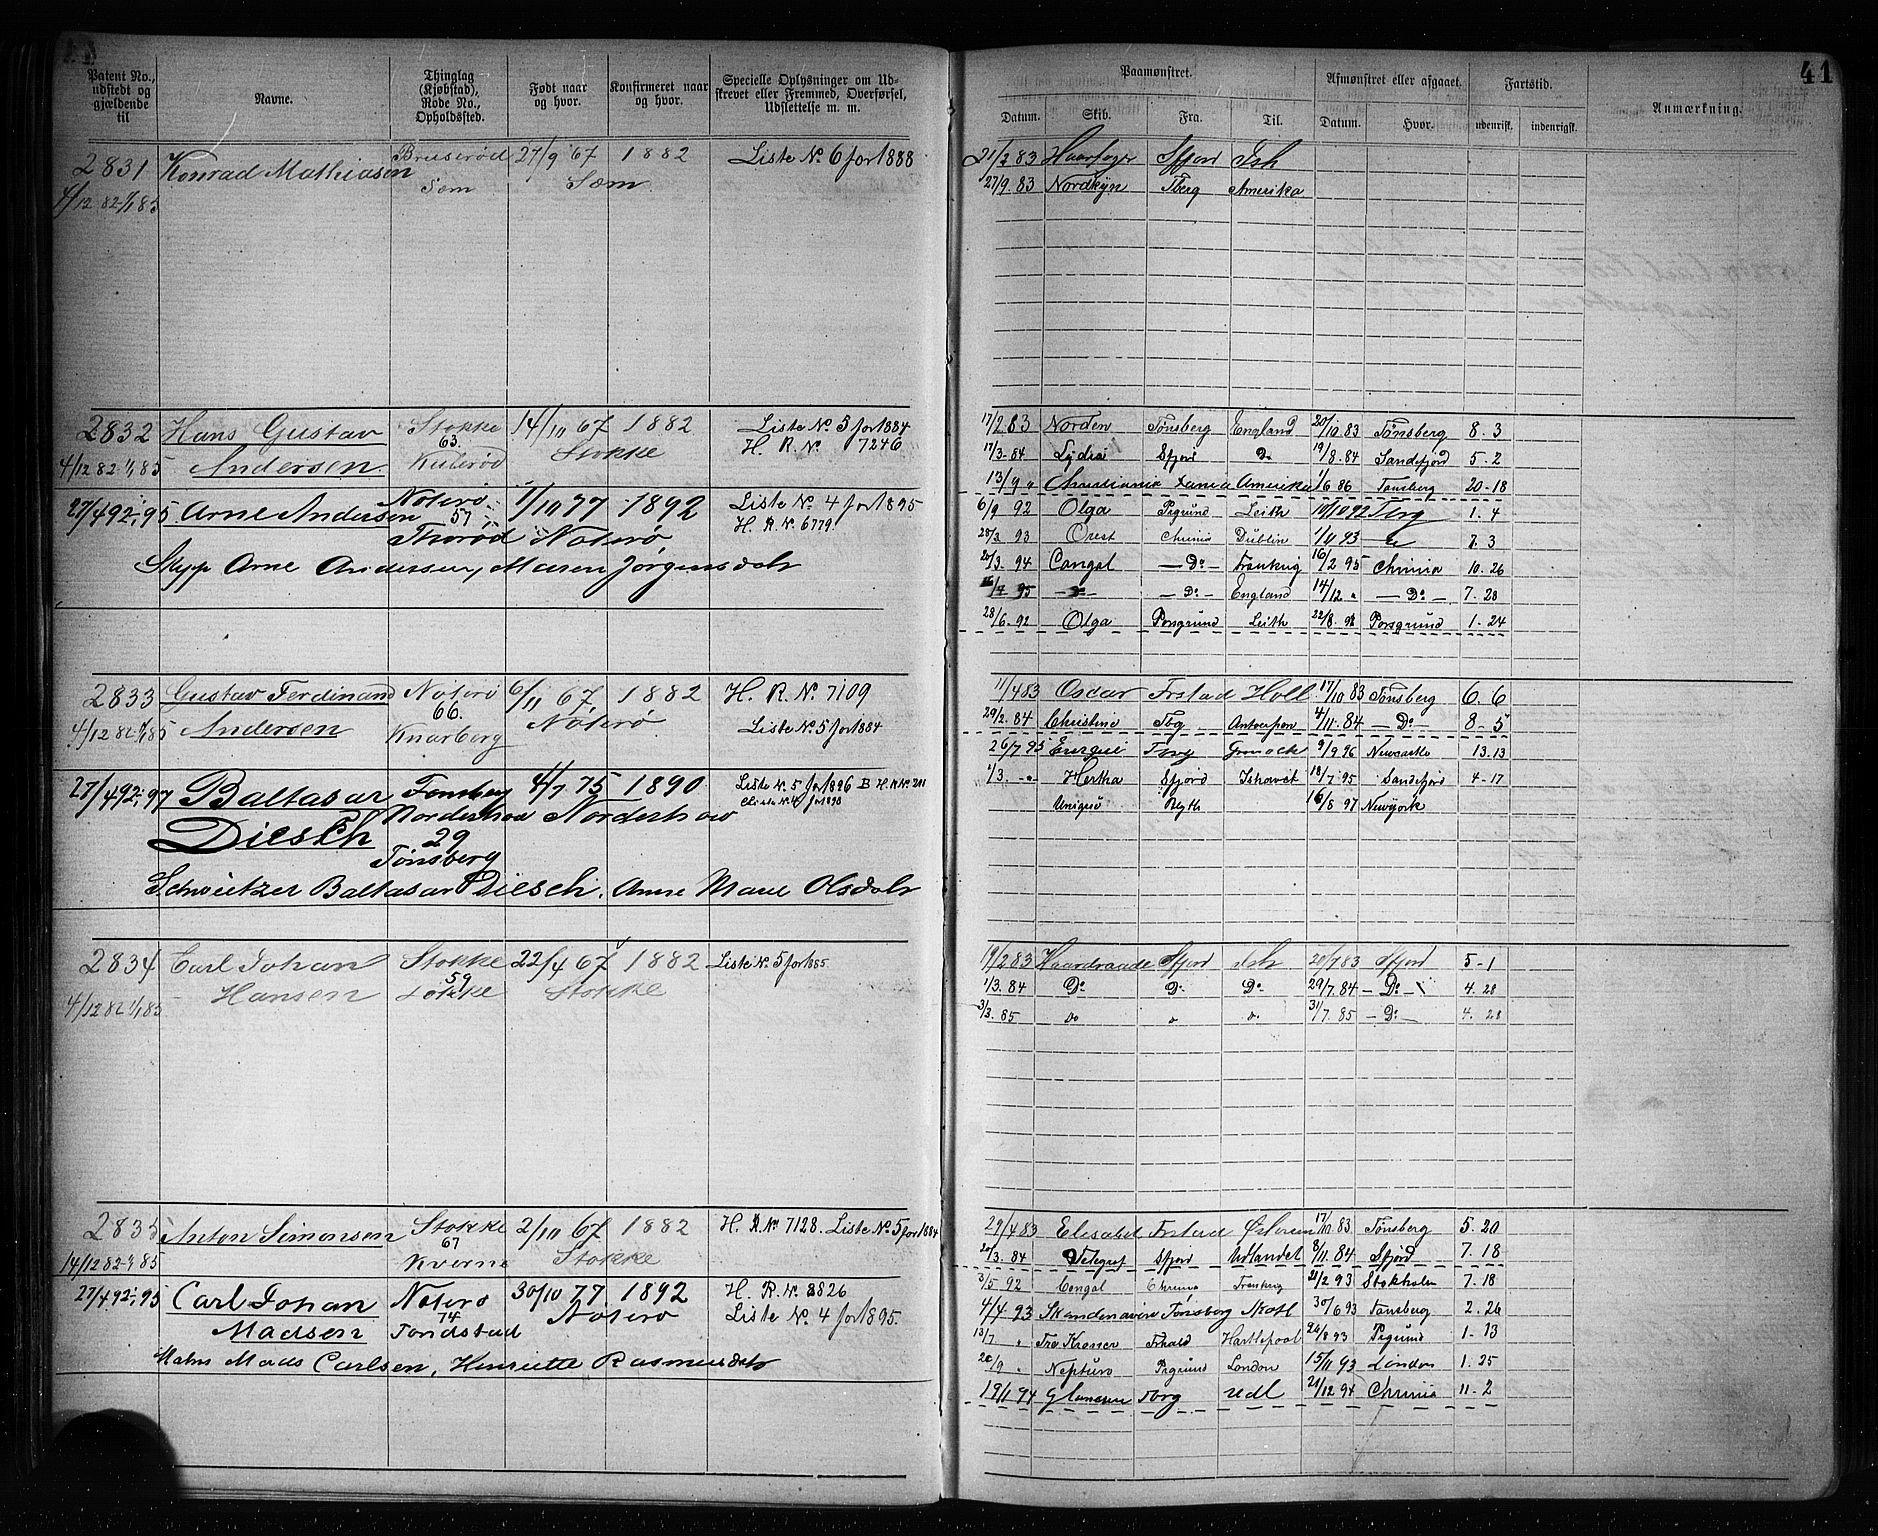 41
Patent No., udstedt og gjældende til
Navne.
Thinglag (Kjøbstad), Rode No., Opholdsfted.
Født naar og hvor.
Konfirmeret naar og hvor.
Specielle Oplysninger om Udskrevet eller Fremmed, Overførsel, Udslettelse m. m.
Paamønstret.
Afmønstret eller afgaaet.
Fartstid.
Anmærkning.
Datum. Skib. Fra. Til. Datum. Hvor. udenrisk. indenrigsk.
2831 Konrad Mathiasen Bruserød 27/9 67 1882 Liste No. 6 for 1888
Sem Sæm
4/12 82-1/1 85
21/2 83 Sfjord Ish
27/9. 83 Nordkyn Tberg Amerika
2832 Hans Gustav Stokke 14/10 67 1882 Liste No. 5 for 1884
63. H. R. No 7246
4/12 82 1/1 85 Andersen Stokke
17/2 83 Norden Tønsberg England 20/10 83 Tønsberg 8. 3
17/3. 84 Sfjord Do 19/8. 84 Sandefjord 5. 2
13/9 " Amerika 1/6 86 Tønsberg 20-18
27/4 92-1/1 95 Arne Andersen Nøterø 1/10 77 1892 Liste No. 4 for 1895
57 H. R. No. 6779
Thorød Nøterø
Skpp Arne Andersen, Maren Jørgensdatr
6/9 92 Olga Pgrund Leith 10/10 92 Tbrg 1. 4
28/3 93 Orest Chrnia Dublin 1/11 93 7. 3
20/3. 94 Cangal — Do — Frankrig 16/2 95 Chrnia 10. 26
95 — Do — England 14/12 " — Do — 7. 28
28/6. 92 Olga Porsgrund Leith 22/8. 92 Porsgrund 1-24
2833 Gustav Ferdinand Nøterø 6/11 67 1882 H. R. No. 7109
66.
4/12 82 1/1 85 Andersen Knarberg Nøterø Liste No. 5 for 1884
11/4 83 Oscar Frstad Holl. 17/10 83 Tønsberg 6. 6
29/2. 84 Christine Tbg Antwerpen 4/11. 84 — Do — 8-5
27/4 92-1/1 97 Baltasar Tønsberg 4/7 75 1890 Liste No. 5 for 1896
Nordenhoa Norderhov
Diesch 29
Tønsberg
Schweitzer Baltasar Diesch, Anne Marie Olsdatr
26/7 95 Tbrg Grenock 9/9 96 Newcastle 13. 13
1/3. Hertha Sfjord Ishavet 18/7. 95 Sandefjord 4-17
Blyth 16/8 97 Newyork
2834 Carl Johan Stokke 22/4 67 1882 Liste No. 5 for 1885
59
4/12 82 1/1 85 Hansen Løkke Stokke
19/2 83 Haardraade Sfjord Ish 20/7 83 Sfjord 5-1
1/3. 84 Do Do Do 29/7. 84 — Do — 4. 28
3/3. 85 Do " " 31/7. 85 — Do — 4. 28
2835 Anton Simonsen Stokke 2/10 67 1882 H. R. No. 7128. Liste No. 5 for 1884
67
14/12 82-1/1 85 Kverne Stokke
29/4 83 Elisabet Frstad 17/10 83 Tønsberg 5. 20
20/3. 84 Telegraf Sfjord Udlandet 8/11. 84 Sfjord 7. 18
27/4 92-1/1 95 Carl Johan Nøterø 30/10 77 1892 H. R. No. 8826
74
Madsen Tøndstad Nøterø Liste No. 4 for 1895.
Matrs Mads Carlsen, Henriette Rasmusdatr
3/5 92 Cangal Chrnia Frankrig 21/2 93 Stokholm 7. 18
4/4 93 Skandenavien Tønsberg Skotl 30/6 93 Tønsberg 2. 26
13/7 " Tre Kroner Frhald Harttepool 26/8 93 Pgrund 1-13
20/9 " Neptun Pgrund London 15/11 93 London 1. 25
19/1 94 Tbrg Udl 21/12 94 Chrnia 11-2